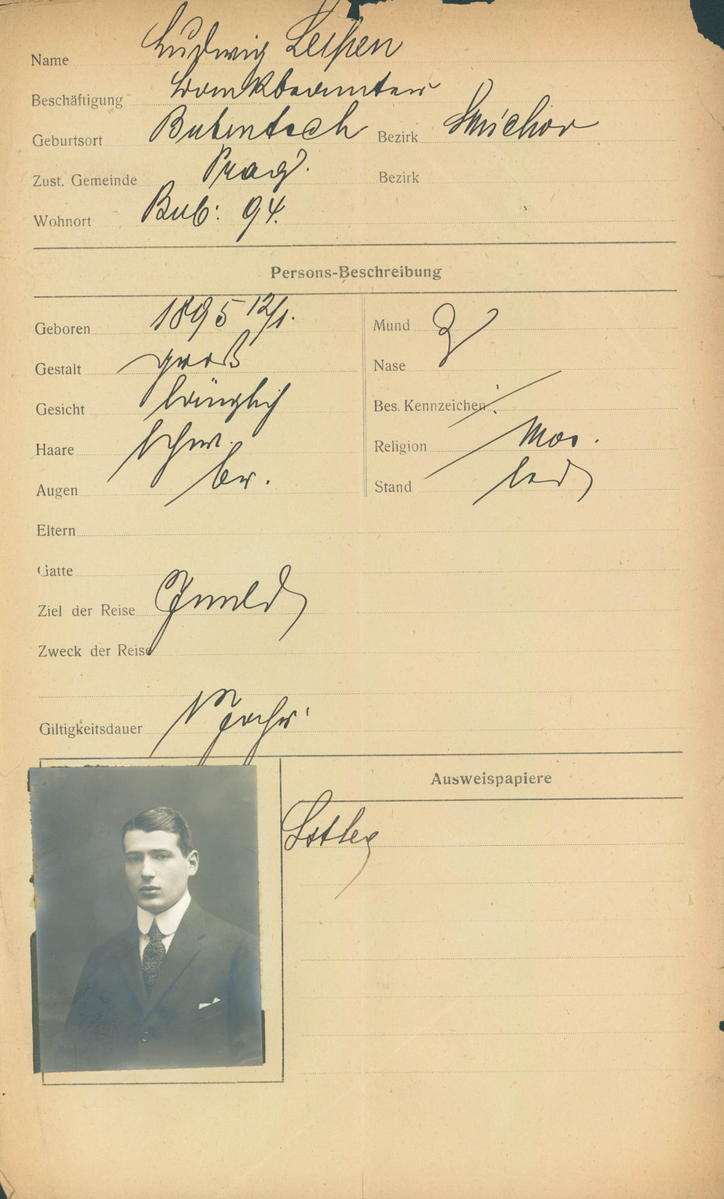 Name Ludwig Leipen
Beschäftigung Bankbeamter
Geburtsort Bubentsch Bezirk Smichov
Zust. Gemeinde Prag. Bezirk
Wohnort Bub: 94.
Persons-Beschreibung
Geboren 1895 12/1.
Mund
Gestalt groß
Nase
Gesicht länglich
Bes. Kennzeichen :
Haare schw.
Religion Mos.
Augen br.
Stand led
Eltern
Gatte
Ziel der Reise Inld
Zweck der Reise
Giltigkeitsdauer 1 Jahr
Ausweispapiere